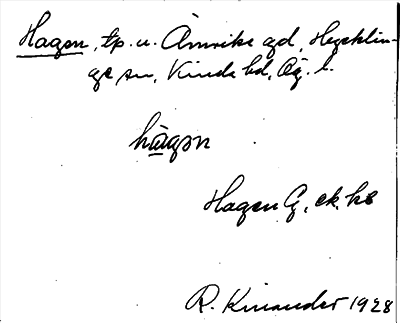 Hagen, tp. u. Ånvike gd, Hycklin-
ge sn, Kinda hd, Ög. l.
hàgən
Hagen G. ek. ks
R. Kinander 1928